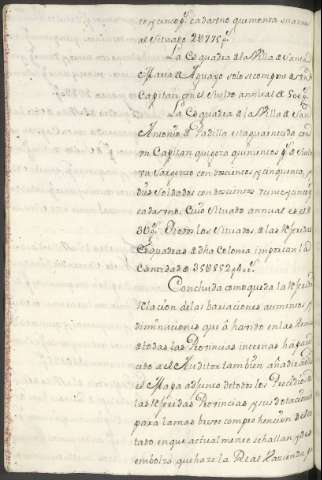 cinco p.s cada uno que monta su anual
al Situado 2U775 p.s
La Esquadra de la Villa de Santa
Maria de Aguayo solo se compone de un
Capitan con el sueldo annual de 500 p.s
La Esquadra de la Villa de San
Antonio de Padilla esta guarnecida con
un Capitan que goza quinientos p.s de
un Sargento con doscientos y cinquenta, y
dos Soldados con doscientos veinte y cinco
cada uno. Cuio Situado annual es de
Todos los Situados de las referidas
Esquadras de dha Colonia importan la
Cantidad de
Concluida como queda la referida
relacion de las bariaciones aumentos, y
diminuciones que á havido en las
de todas las Provincias internas ha
el Auditor tambien añadir
el Mapa adjunto de todos los Presidios
las referidas Provincias y sus dotaciones
para la mas breve comprehencion del
tado en que actualmente se hallan, y des
embolzo que haze la Real Hacienda